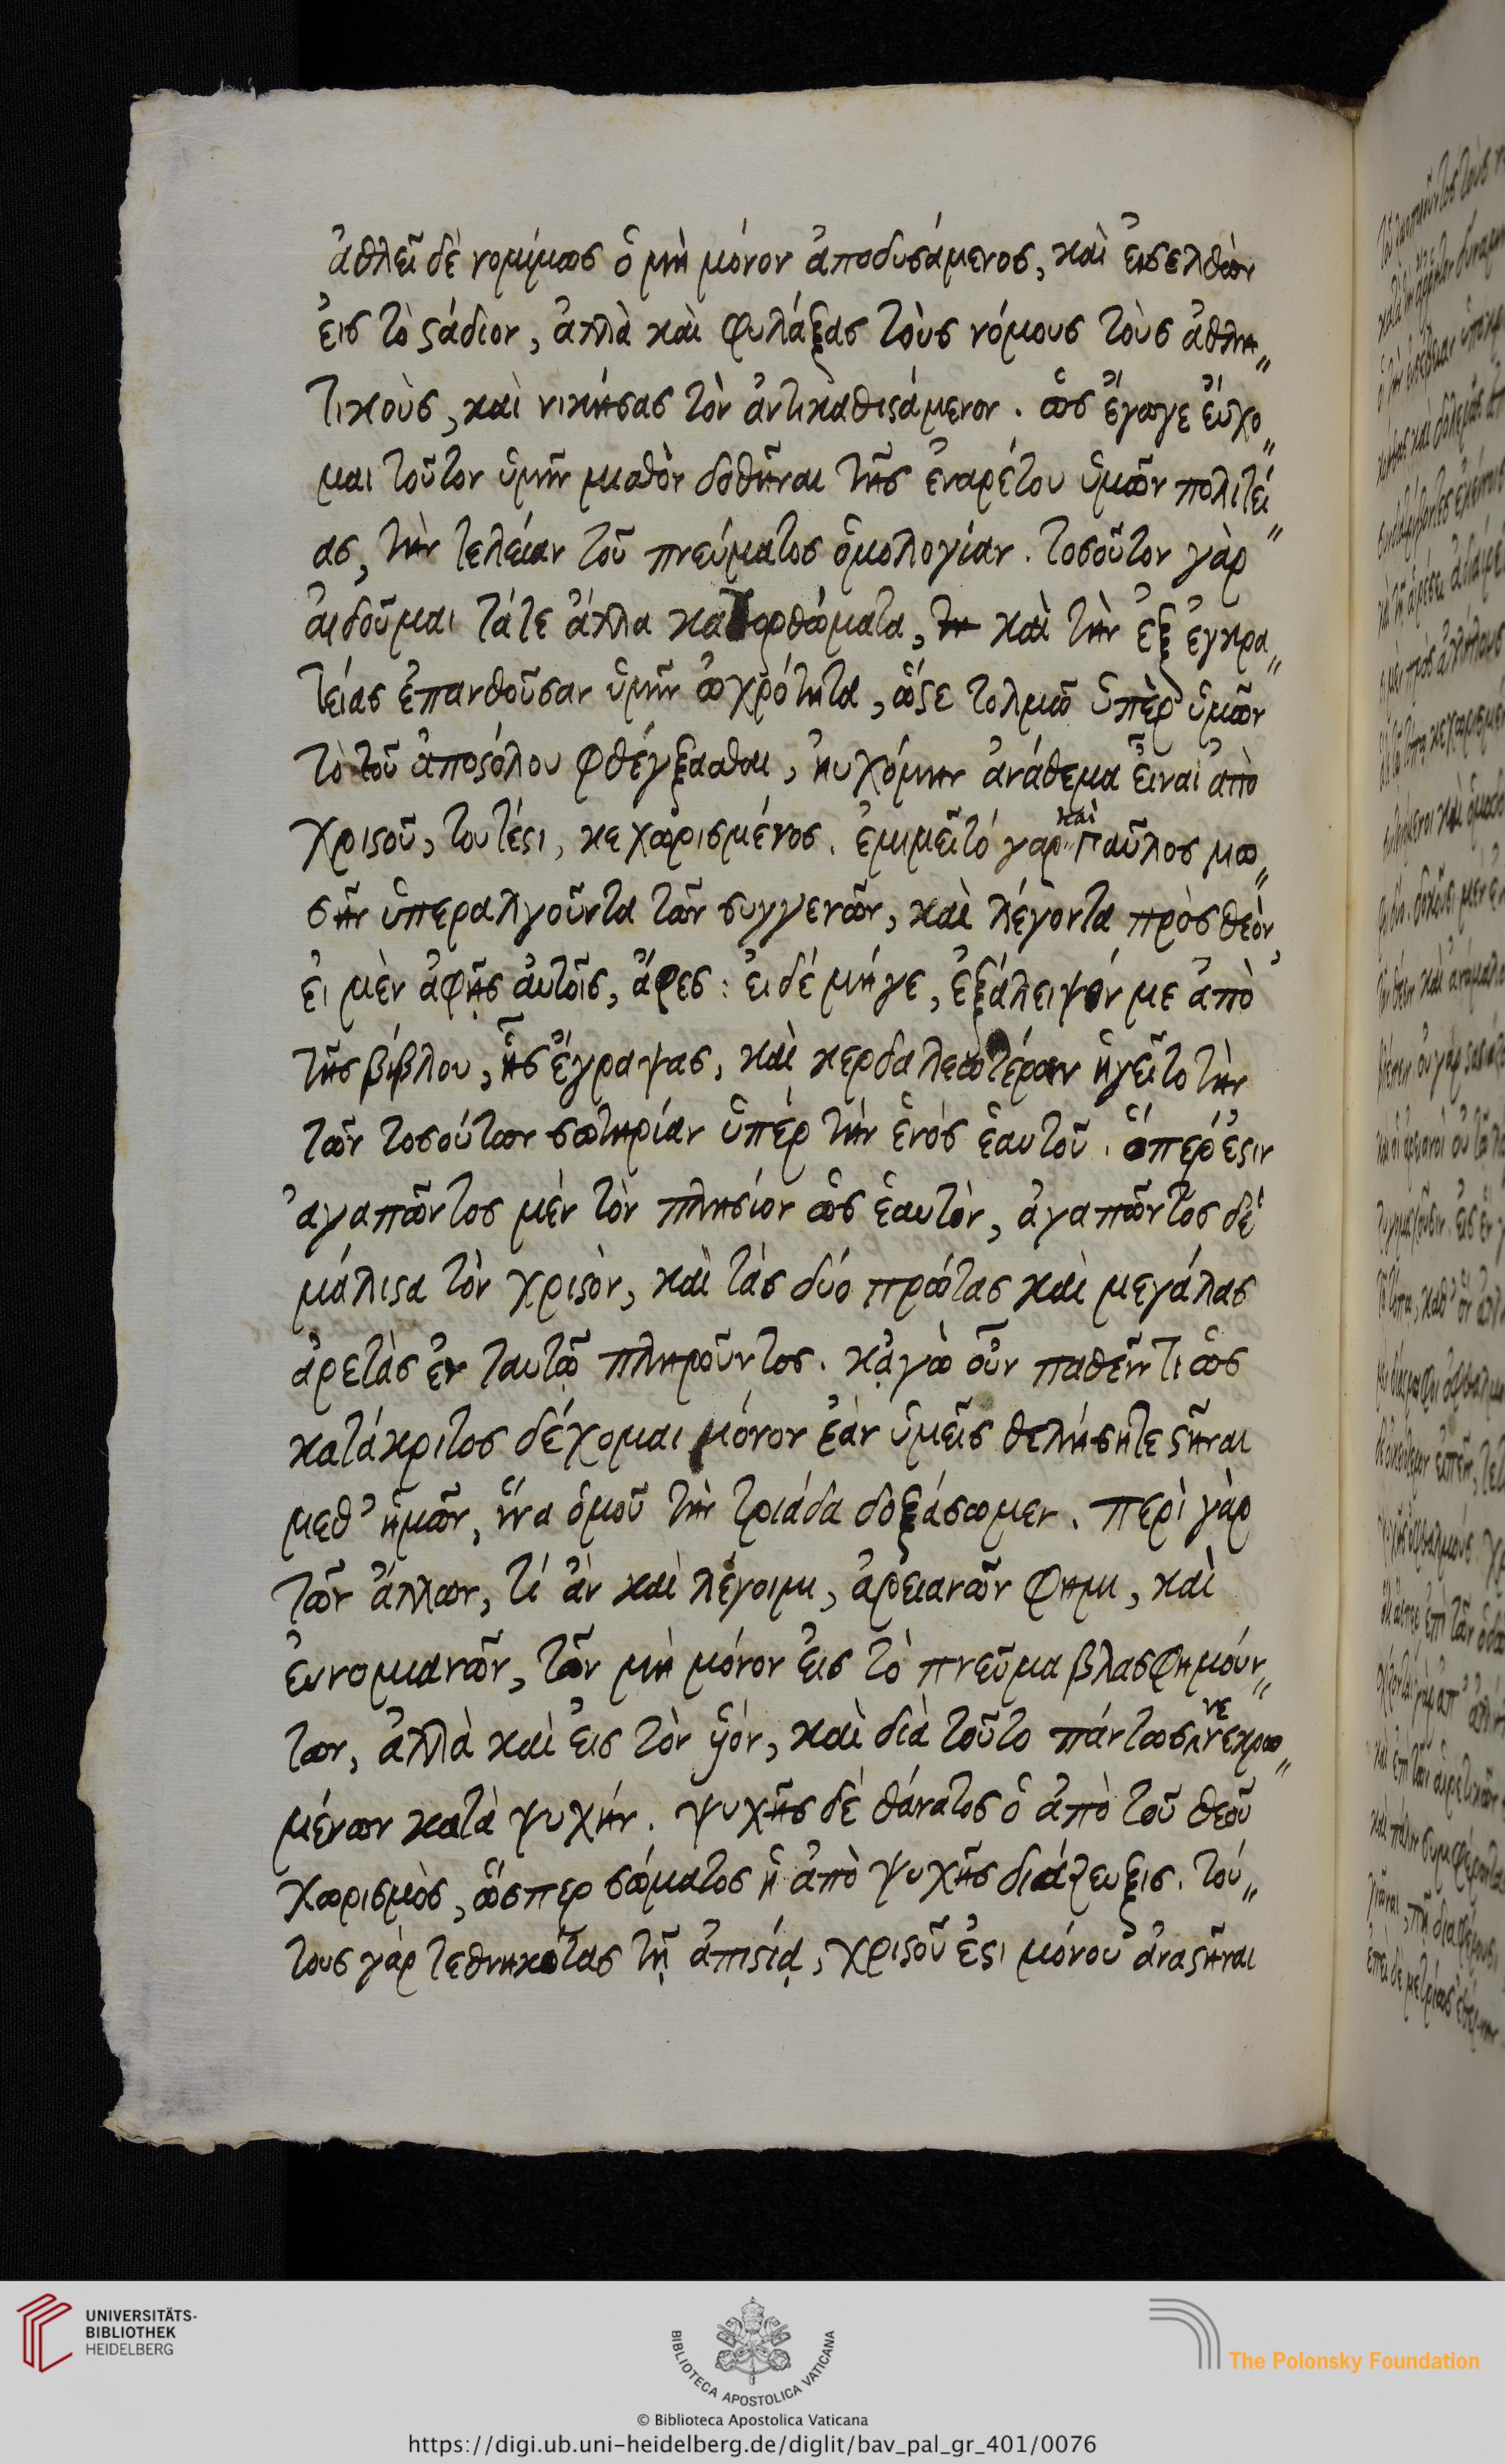 ἀθλεῖ δὲ νομίμως ὁ μὴ μόνον ἀποδυσάμενος, καὶ ἐισελθὼν
ἐις τὸ ϛάδιον, ἀλλὰ καὶ φυλάξας τοὺς νόμους τοὺς ἀθλη„
τικοὺς, καὶ νικήσας τὸν ἀντικαθισάμενον. ὡς ἔγωγε ἔυχο„
μαι τοῦτον ὑμῖν μισθὸν δοθῆναι τῆς ἐναρέτου ὑμῶν πολιτεί„
ας, τὴν τελείαν τοῦ πνεύματος ὁμολογίαν. τοσοῦτον γὰρ
ἀιδοῦμαι τάτε ἄλλα κατορθώματα, καὶ τὴν ἐξ ἐγκρα„
τείας ἐπανθοῦσαν ὑμῖν ὠχρότητα, ὥϛε τολμῶ ὑπὲρ ὑμῶν
τὸ τοῦ ἀποϛόλου φθέγξασθαι, ἠυχόμην ἀνάθεμα ἔιναι ἀπὸ
χριϛοῦ, τουτέϛι, κεχωρισμένος. ἐμιμεῖτό γὰρ καὶ Παῦλος μω„
σῆν ὑπεραλγοῦντα τῶν συγγενῶν, καὶ λέγοντα πρὸς θεὸν
ἐι μὲν ἀφῇς ἀυτοῖς, ἄφες: ἐι δέ μήγε, ἐξάλειψόν με ἀπὸ
τῆς βίβλου, ἧς ἔγραψας, καὶ κερδαλεωτέραν ἡγεῖτο τὴν
τῶν τοσούτων σωτηρίαν ὑπέρ τὴν ἑνός ἑαυτοῦ. ὅπερ ἐϛιν
ἀγαπῶντος μὲν τὸν πλησίον ὡς ἑαυτὸν, ἀγαπῶντος δέ
μάλιϛα τὸν χριϛὸν, καὶ τὰς δύο πρώτας καὶ μεγάλας
ἀρετὰς ἐν ταυτῷ πληροῦντος. κᾀγὼ οὖν παθεῖν τι ὡς
κατάκριτος δέχομαι μόνον ἐάν ὑμεῖς θελήσητε ϛῆναι
μεθ’ ἡμῶν, ἵνα ὁμοῦ τὴν τριάδα δοξάσωμεν. περὶ γὰρ
τῶν ἄλλων, τί ἂν καὶ λέγοιμι, ἀρειανῶν φημι, καὶ
ἐυνομιανῶν, τῶν μὴ μόνον ἐις τὸ πνεῦμα βλασφημούν„
των, ἀλλὰ καὶ ἐις τὸν ὑιόν, καὶ διὰ τοῦτο πάντως νενεκρω„
μένων κατὰ ψυχήν. ψυχῆς δέ θάνατος ὁ ἀπὸ τοῦ θεοῦ
χωρισμὸς, ὥσπερ σώματος ἡ ἀπὸ ψυχῆς διάζευξις. τού„
τους γὰρ τεθνηκότας τῇ ἀπιϛίᾳ, χριϛοῦ ἐϛι μόνου ἀναϛῆναι
UNIVERSITÄTS-
BIBLIOTHEK
HEIDELBERG
BIBLIOTECA APOSTOLICA VATICANA
The Polonsky Foundation
© Biblioteca Apostolica Vaticana
https://digi.ub.uni-heidelberg.de/diglit/bav_pal_gr_401/0076